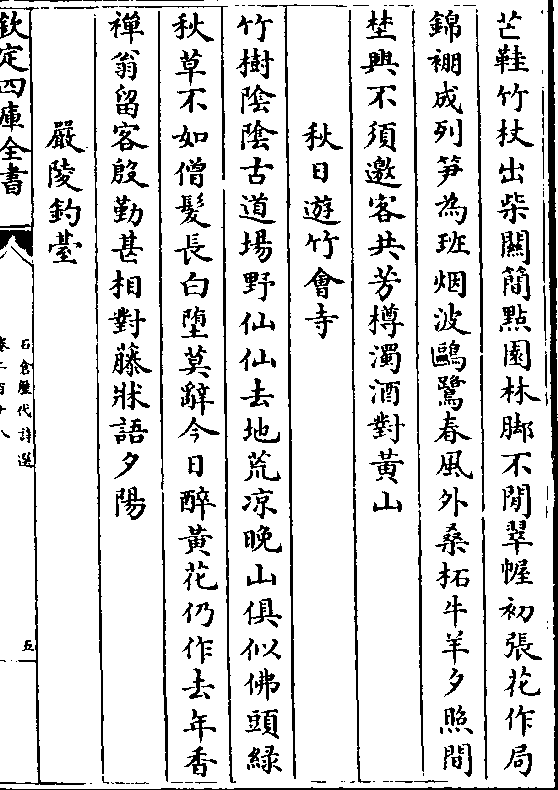 芒鞋竹杖出柴關簡點園林脚不閒翠幄初張花作局
錦棚成列笋為班烟波鷗鷺春風外桑柘牛羊夕照間
埜興不須邀客共芳樽濁酒對黄山
秋日遊竹會寺
竹樹陰陰古道塲野仙仙去地荒凉晚山俱似佛頭緑
秋草不如僧髮長白墮莫辭今日醉黄花仍作去年香
禪翁留客殷勤甚相對藤牀語夕陽
嚴陵釣臺
欽定四庫全書
石倉歷代詩選
五